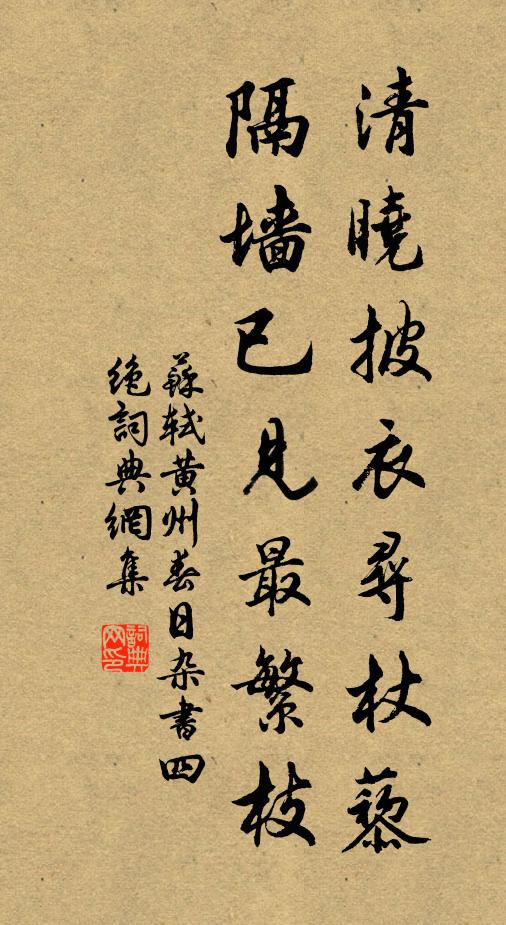 清曉披衣尋杖藜
隔墙已見最繁枝
蘇軾黄州春日杂書四
绝詞典網集
詞典网印